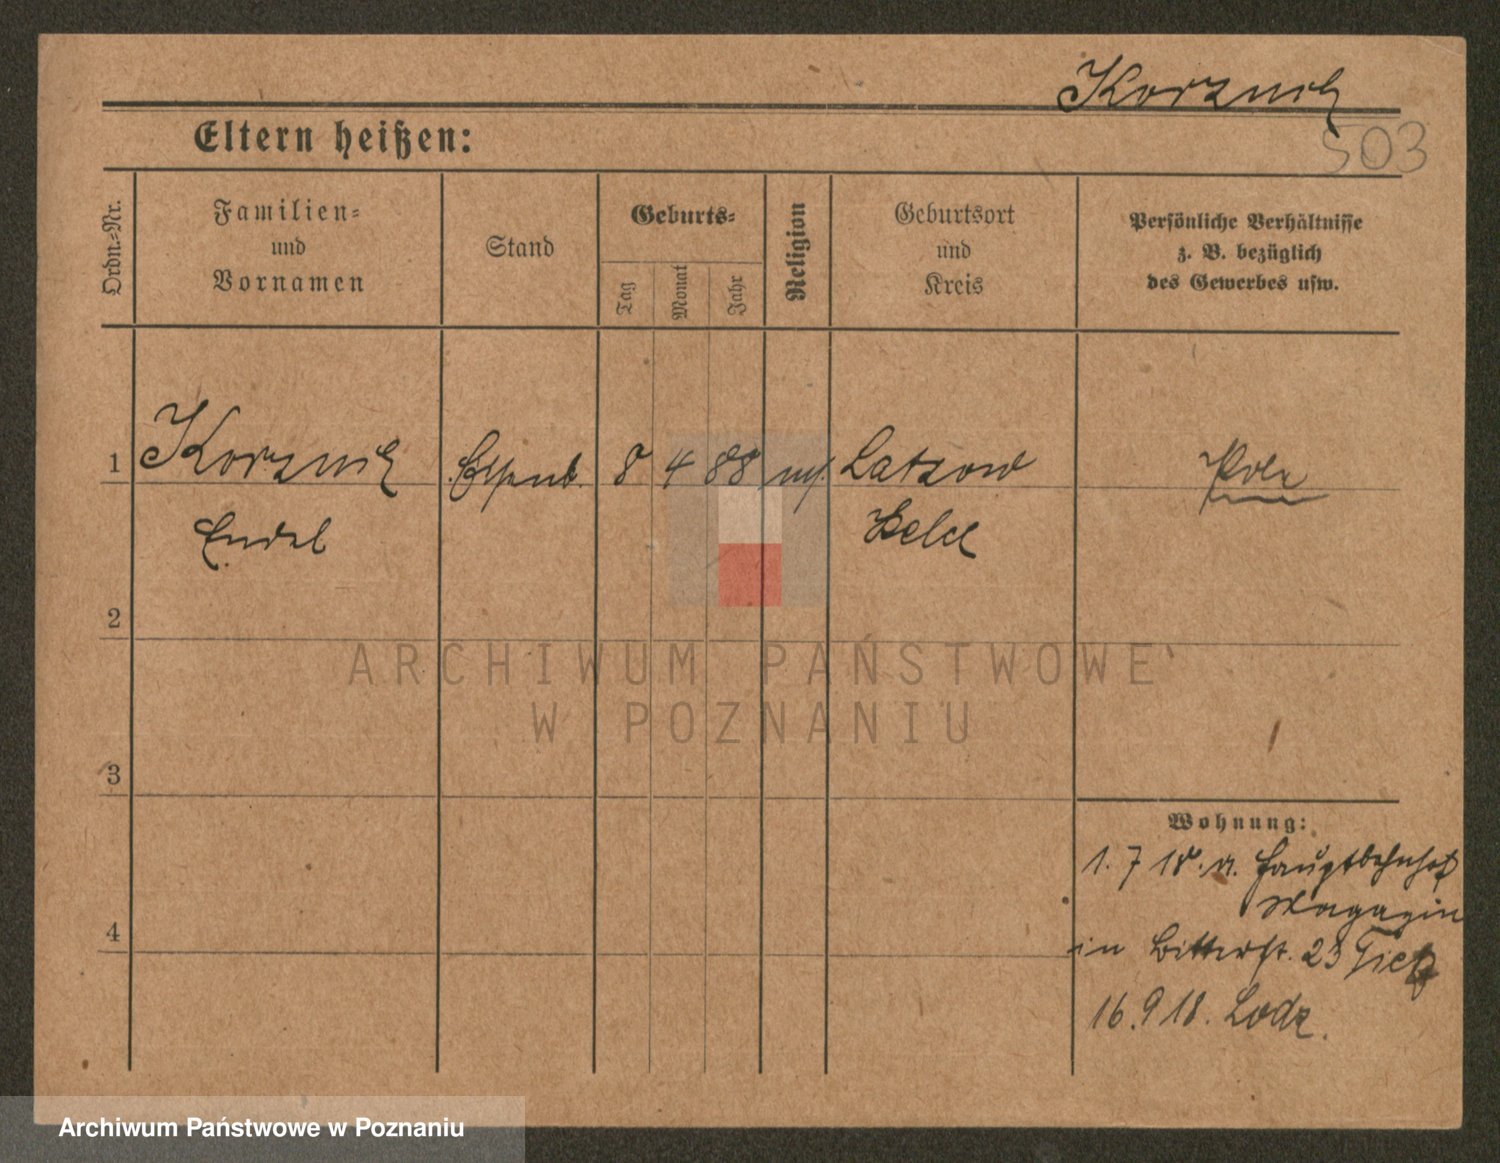 Korzuch
503
Eltern heißen:
Ordn.-Nr.
Familien-
und
Vornamen
Stand
Geburts-
Tag
Monat
Jahr
Religion
Geburtsort
und
Kreis
Persönliche Verhältnisse
z. B. bezüglich
des Gewerbes usw.
1 8 4 88 Latzow Pole
2
3
4
Wohnung:
1. 7 18. v. Hauptbahnhof
Magazin
in Bitterst. 23 Tietz
16. 9 18. Lodz.
ARCHIWUM PAŃSTWOWE
W POZNANIU
Archiwum Państwowe w Poznaniu